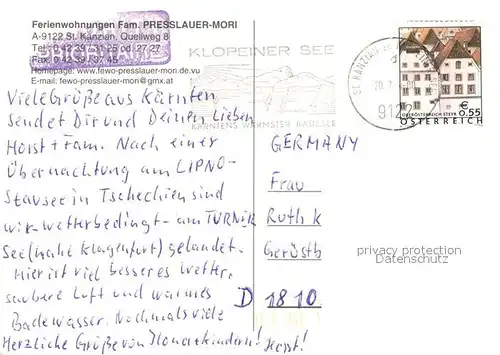 Ferienwohnungen Fam. PRESSLAUER-MORI
A-9122 St. Kanzian, Quellweg 8
Tel.: 0 42 39 / 31 25 od. 27 27
Fax: 0 42 39 / 37 45
Homepage: www.fewo-presslauer-mori.de.vu
E-mail: fewo-presslauer-mori@gmx.at
KLOPEINER SEE
KÄRNTENS WÄRMSTER BADESEE
ST. KANZIAN
9122
€ 0,55
OBERÖSTERREICH STEYR
ÖSTERREICH
Viele Grüße aus Kärnten
sendet Dir und Deinen Lieben
Horst + Fam. Nach einer
Übernachtung am LIPNO-
Stausee in Tschechien sind
wir - wetterbedingt - am TURNER
See (nahe Klagenfurt) gelandet.
Hier ist viel besseres Wetter,
saubere Luft und warmes
Badewasser. Nochmals viele
Herzliche Grüße von Ilona + kindern!
Horst!
GERMANY
Frau
Ruth K
Gerüstb
D 1810
privacy protection
Datenschutz